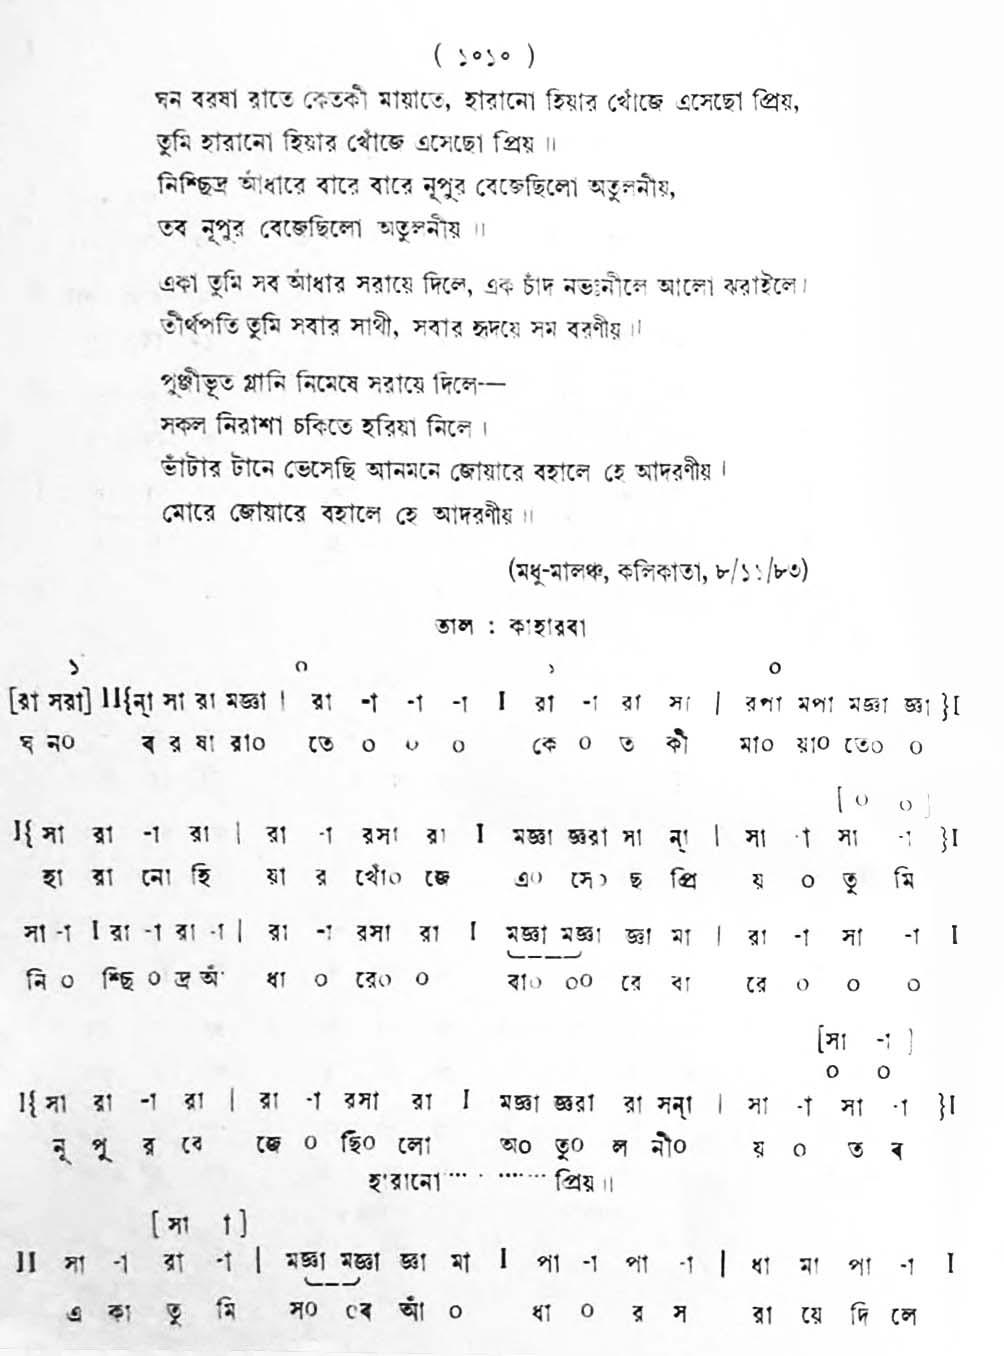 ( ১০১০ )
ঘন বরষা রাতে কেতকী মায়াতে, হারানো হিয়ার খোঁজে এসেছো প্রিয়,
তুমি হারানো হিয়ার খোঁজে এসেছো প্রিয় ॥
নিশ্ছিদ্র আঁধারে বারে বারে নূপুর বেজেছিলো অতুলনীয়,
তব নূপুর বেজেছিলো অতুলনীয় ॥
একা তুমি সব আঁধার সরায়ে দিলে, এক চাঁদ নভঃনীলে আলো ঝরাইলে।
তীর্থপতি তুমি সবার সাথী, সবার হৃদয়ে সম বরণীয় ॥
পুঞ্জীভূত গ্লানি নিমেষে সরায়ে দিলে—
সকল নিরাশা চকিতে হরিয়া নিলে ।
ভাঁটার টানে ভেসেছি আনমনে জোয়ারে বহালে হে আদরণীয় ।
মোরে জোয়ারে বহালে হে আদরণীয় ॥
(মধু-মালঞ্চ, কলিকাতা, ৮/১১/৮৩)
তাল : কাহারবা
১ ০ ১ ০
[রা সরা] II{ন্‌া সা রা মজ্ঞা | রা -া -া -া I রা -া রা সা | রপা মপা মজ্ঞা জ্ঞা }I
ঘ ন০ ব র ষা রা০ তে ০ ০ ০ কে ০ ত কী মা০ য়া০ তে০ ০
[ ০ ০ ]
I{ সা রা -া রা | রা -া রসা রা I মজ্ঞা জ্ঞরা সা ন্‌া | সা -া সা -া }I
হা রা নো হি য়া র খোঁ০ জে এ০ সে০ ছ প্রি য় ০ তু মি
সা -া I রা -া রা -া | রা -া রসা রা I মজ্ঞা মজ্ঞা জ্ঞা মা | রা -া সা -া I
নি ০ শ্ছি ০ দ্র আঁ ধা ০ রে০ ০ বা০ ০০ রে বা রে ০ ০ ০
[সা -া ]
০ ০
I{ সা রা -া রা | রা -া রসা রা I মজ্ঞা জ্ঞরা রা সন্‌া | সা -া সা -া }I
নূ পু র বে জে ০ ছি০ লো অ০ তু০ ল নী০ য় ০ ত ব
হারানো ·········· প্রিয় ॥
[ সা -া ]
II সা -া রা -া | মজ্ঞা মজ্ঞা জ্ঞা মা I পা -া পা -া | ধা মা পা -া I
এ কা তু মি স০ ০ব আঁ ০ ধা ০ র স রা য়ে দি লে